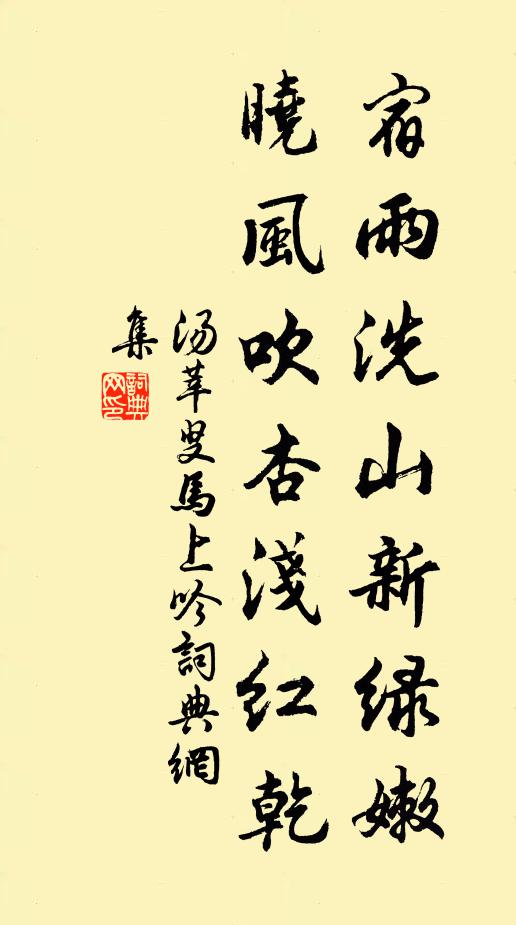 宿雨洗山新緑嫩
曉風吹杏淺紅乾
湯莘叟馬上吟詞典網
集
詞典
网印